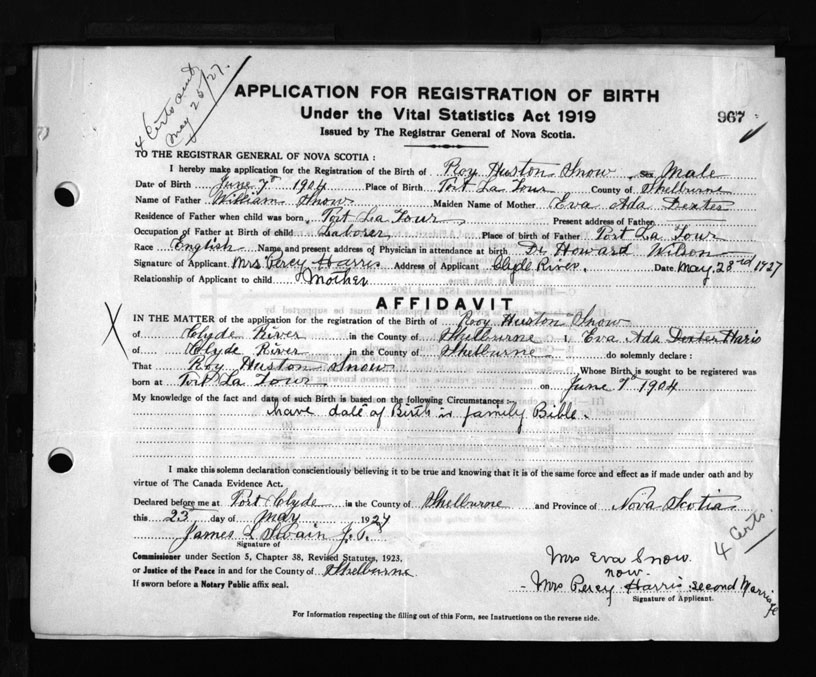 4 Certs sent
May 25/27.
APPLICATION FOR REGISTRATION OF BIRTH
Under the Vital Statistics Act 1919
967
Issued by The Registrar General of Nova Scotia.
TO THE REGISTRAR GENERAL OF NOVA SCOTIA :
I hereby make application for the Registration of the Birth of Roy Huston Snow Sex Male
Date of Birth June 7th 1904 Place of Birth Port La Tour County of Shelburne
Name of Father William Snow Maiden Name of Mother Eva Ada Dexter
Residence of Father when child was born Port La Tour Present address of Father
Occupation of Father at Birth of child Laborer Place of birth of Father Port La Tour
Race English Name and present address of Physician in attendance at birth Dr Howard Wilson
Signature of Applicant Mrs Percy Harris Address of Applicant Clyde River Date May 23rd 1927
Relationship of Applicant to child Mother
AFFIDAVIT
IN THE MATTER of the application for the registration of the Birth of Roy Huston Snow
of Clyde River in the County of Shelburne I Eva Ada Dexter Haris
of Clyde River in the County of Shelburne do solemnly declare :
That Roy Huston Snow Whose Birth is sought to be registered was
born at Port La Tour on June 7th 1904
My knowledge of the fact and date of such Birth is based on the following Circumstances :
have date of Birth in family Bible.
I make this solemn declaration conscientiously believing it to be true and knowing that it is of the same force and effect as if made under oath and by
virtue of The Canada Evidence Act.
Declared before me at Port Clyde in the County of Shelburne and Province of Nova Scotia
this 23 day of May 1927
James L Swain J.P.
Signature of
Commissioner under Section 5, Chapter 38, Revised Statutes, 1923.
or Justice of the Peace in and for the County of Shelburne
If sworn before a Notary Public affix seal.
4 Certs.
Mrs Eva Snow
now
Mrs Percy Harris second Marriage
Signature of Applicant.
For Information respecting the filling out of this Form, see Instructions on the reverse side.